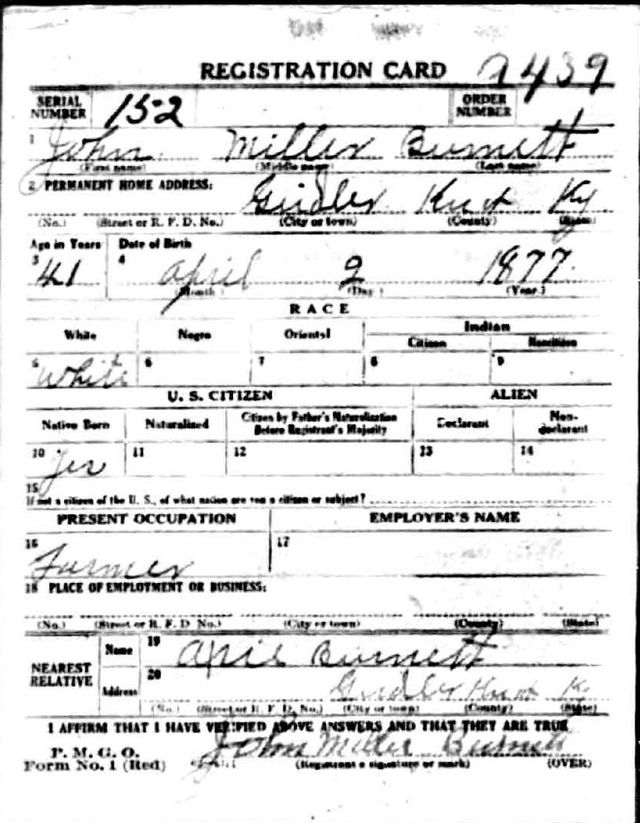 REGISTRATION CARD 2439
SERIAL NUMBER 152 ORDER NUMBER
1 John Miller Burnett
(First name) (Middle name) (Last name)
2 PERMANENT HOME ADDRESS: Girdler Knox Ky
(No.) (Street or R. F. D. No.) (City or town) (County) (State)
Age in Years Date of Birth
3 41 4 April 2 1877
(Month) (Day) (Year)
RACE
White Negro Oriental Indian
Citizen Noncitizen
5 White 6 7 8 9
U. S. CITIZEN ALIEN
Native Born Naturalized Citizen by Father's Naturalization Before Registrant's Majority Declarant Non-declarant
10 Yes 11 12 13 14
15
If not a citizen of the U. S., of what nation are you a citizen or subject?
PRESENT OCCUPATION EMPLOYER'S NAME
16 Farmer 17
18 PLACE OF EMPLOYMENT OR BUSINESS:
(No.) (Street or R. F. D. No.) (City or town) (County) (State)
NEAREST RELATIVE Name 19 Burnett
Address 20 Girdler Knox Ky
(No.) (Street or R. F. D. No.) (City or town) (County) (State)
I AFFIRM THAT I HAVE VERIFIED ABOVE ANSWERS AND THAT THEY ARE TRUE
P. M. G. O.
Form No. 1 (Red) John Miller Burnett
(Registrant's signature or mark) (OVER)